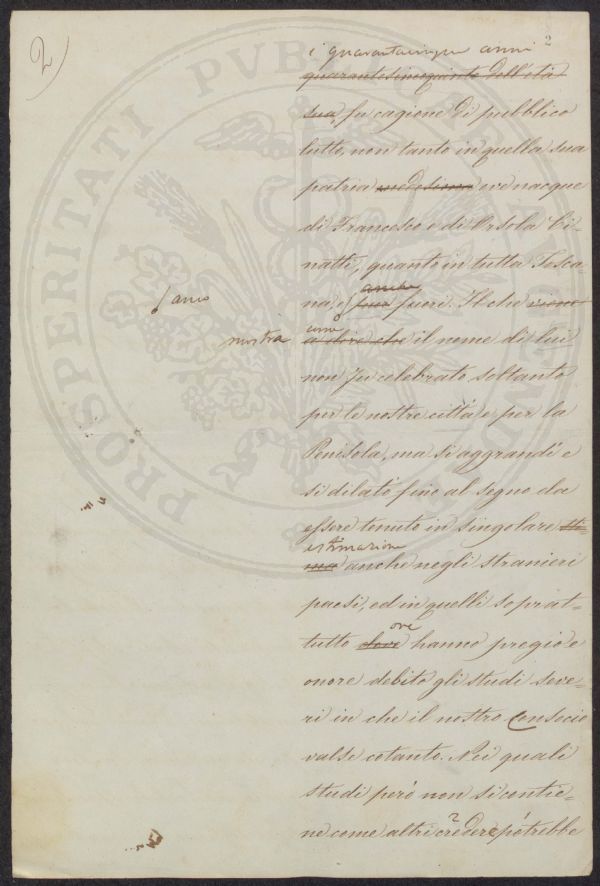 2
2
i quarantacinque anni
quarantesimoquinto dell'età
sua, fu cagione di pubblico
lutto, non tanto in quella sua
patria medesima ove nacque
di Francesco e di Orsola Ci-
natti, quanto in tutta Tosca-
anche
na, e fuori. Il che viene
mostra
a dire che il nome di lui
non fu celebrato soltanto
per le nostre città e per la
Penisola, ma si aggrandì e
si dilatò fino al segno da
essere tenuto in singolare sti-
estimazione
ma anche negli stranieri
paesi, ed in quelli soprat-
ove
tutto dove hanno pregio e
onore debito gli studi seve-
ri in che il nostro Consocio
valse cotanto. Nei quali
studi però non si contie-
ne come altri credere potrebbe
PROSPERITATI PUBLICAE AUGENDAE